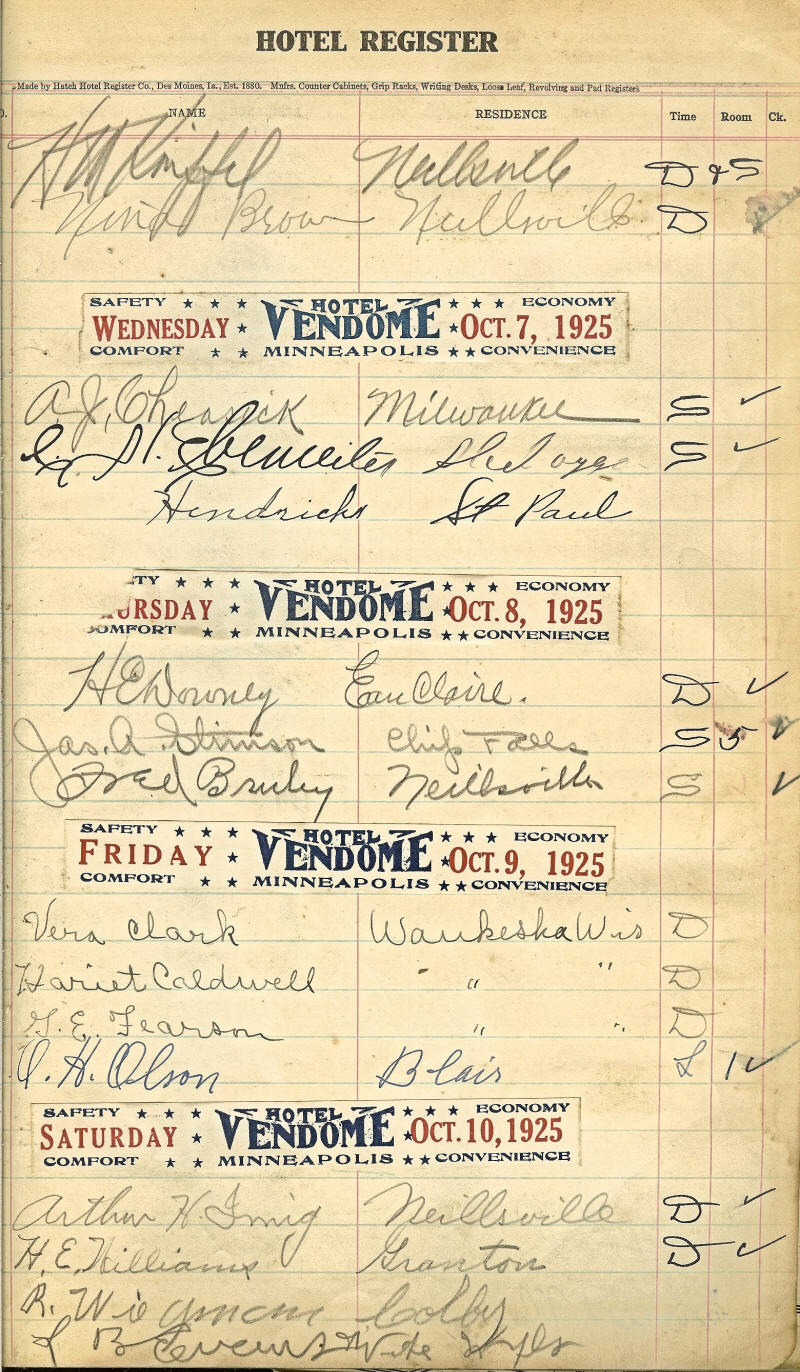 HOTEL REGISTER
Made by Hatch Hotel Register Co., Des Moines, Ia., Est. 1880. Mnfrs. Counter Cabinets, Grip Racks, Writing Desks, Loose Leaf, Revolving and Pad Registers
NAME RESIDENCE Time Room Ck.
Neillsville D & S
Brown Neillsville D
SAFETY ★ ★ ★ HOTEL ★ ★ ★ ECONOMY
WEDNESDAY ★ VENDOME ★ OCT. 7, 1925
COMFORT ★ ★ MINNEAPOLIS ★ ★ CONVENIENCE
A. J. Milwaukee S ✓
S ✓
Hendricks St Paul
TY ★ ★ ★ HOTEL ★ ★ ★ ECONOMY
URSDAY ★ VENDOME ★ OCT. 8, 1925
OMFORT ★ ★ MINNEAPOLIS ★ ★ CONVENIENCE
H E Downey Eau Claire. D ✓
Jas. A. Stimson Chip Falls S 5 ✓
Fred Bruley Neillsville S ✓
SAFETY ★ ★ ★ HOTEL ★ ★ ★ ECONOMY
FRIDAY ★ VENDOME ★ OCT. 9, 1925
COMFORT ★ ★ MINNEAPOLIS ★ ★ CONVENIENCE
Vera Clark Waukesha Wis D
Hariet Caldwell " " D
G. E. Fearson " " D
O. H. Olson Blair L 1 ✓
SAFETY ★ ★ ★ HOTEL ★ ★ ★ ECONOMY
SATURDAY ★ VENDOME ★ OCT. 10, 1925
COMFORT ★ ★ MINNEAPOLIS ★ ★ CONVENIENCE
Arthur H. Imig Neillsville D ✓
H. E. Williams Granton D ✓
R. Colby